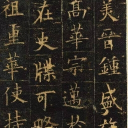 美晉鍾盛族
高華宗邁於
在史牒可略
祖重華使持